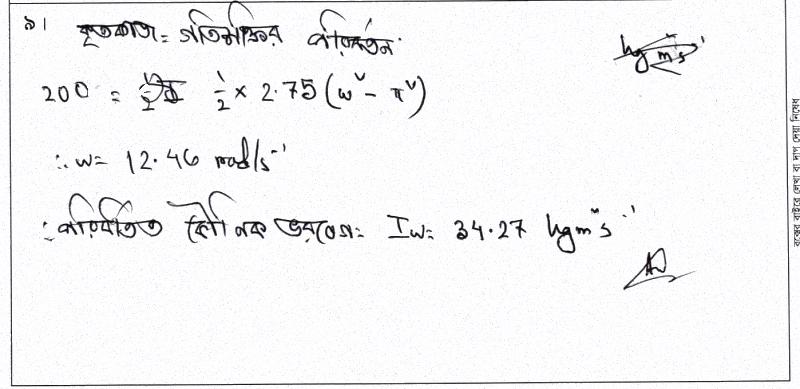 ৯। কৃতকাজ = গতিশক্তির পরিবর্তন
200 = ½ × 2.75 (ω² - π²)
∴ ω = 12.46 rad/s⁻¹
∴ পরিবর্তিত কৌণিক ভরবেগ = Iω = 34.27 kgm²s⁻¹
Ans
বক্সের বাইরে লেখা বা দাগ দেয়া নিষেধ